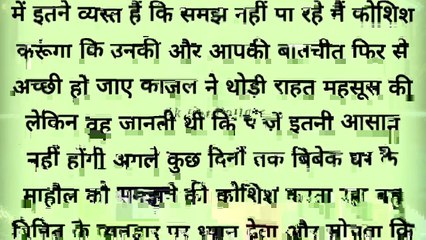 में इतने व्यस्त हैं कि समझ नहीं पा रहे मैं कोशिश
करूंगा कि उनकी और आपकी बातचीत फिर से
अच्छी हो जाए काजल ने थोड़ी राहत महसूस की
लेकिन वह जानती थी कि इतनी आसान
नहीं होंगी अगले कुछ दिनों तक बिबेक घर के
माहौल को की कोशिश करता रहा वह
के व्यवहार पर ध्यान देता और सोचता कि